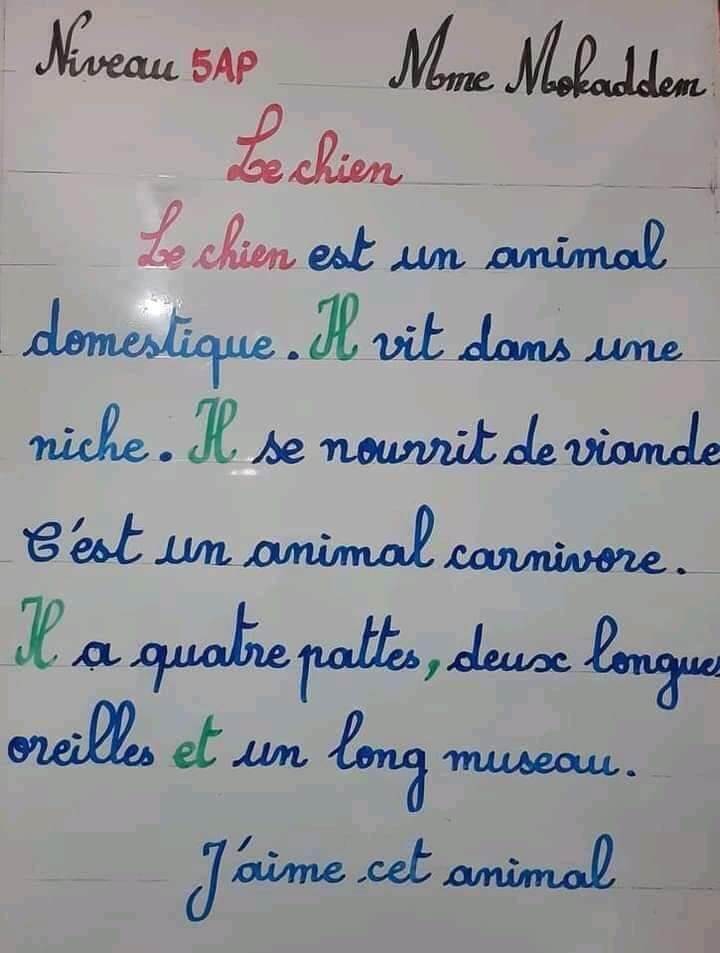 Niveau 5AP Mme Mokaddem
Le chien
Le chien est un animal
domestique. Il vit dans une
niche. Il se nourrit de viande
C'est un animal carnivore.
Il a quatre pattes, deux longues
oreilles et un long museau.
J'aime cet animal